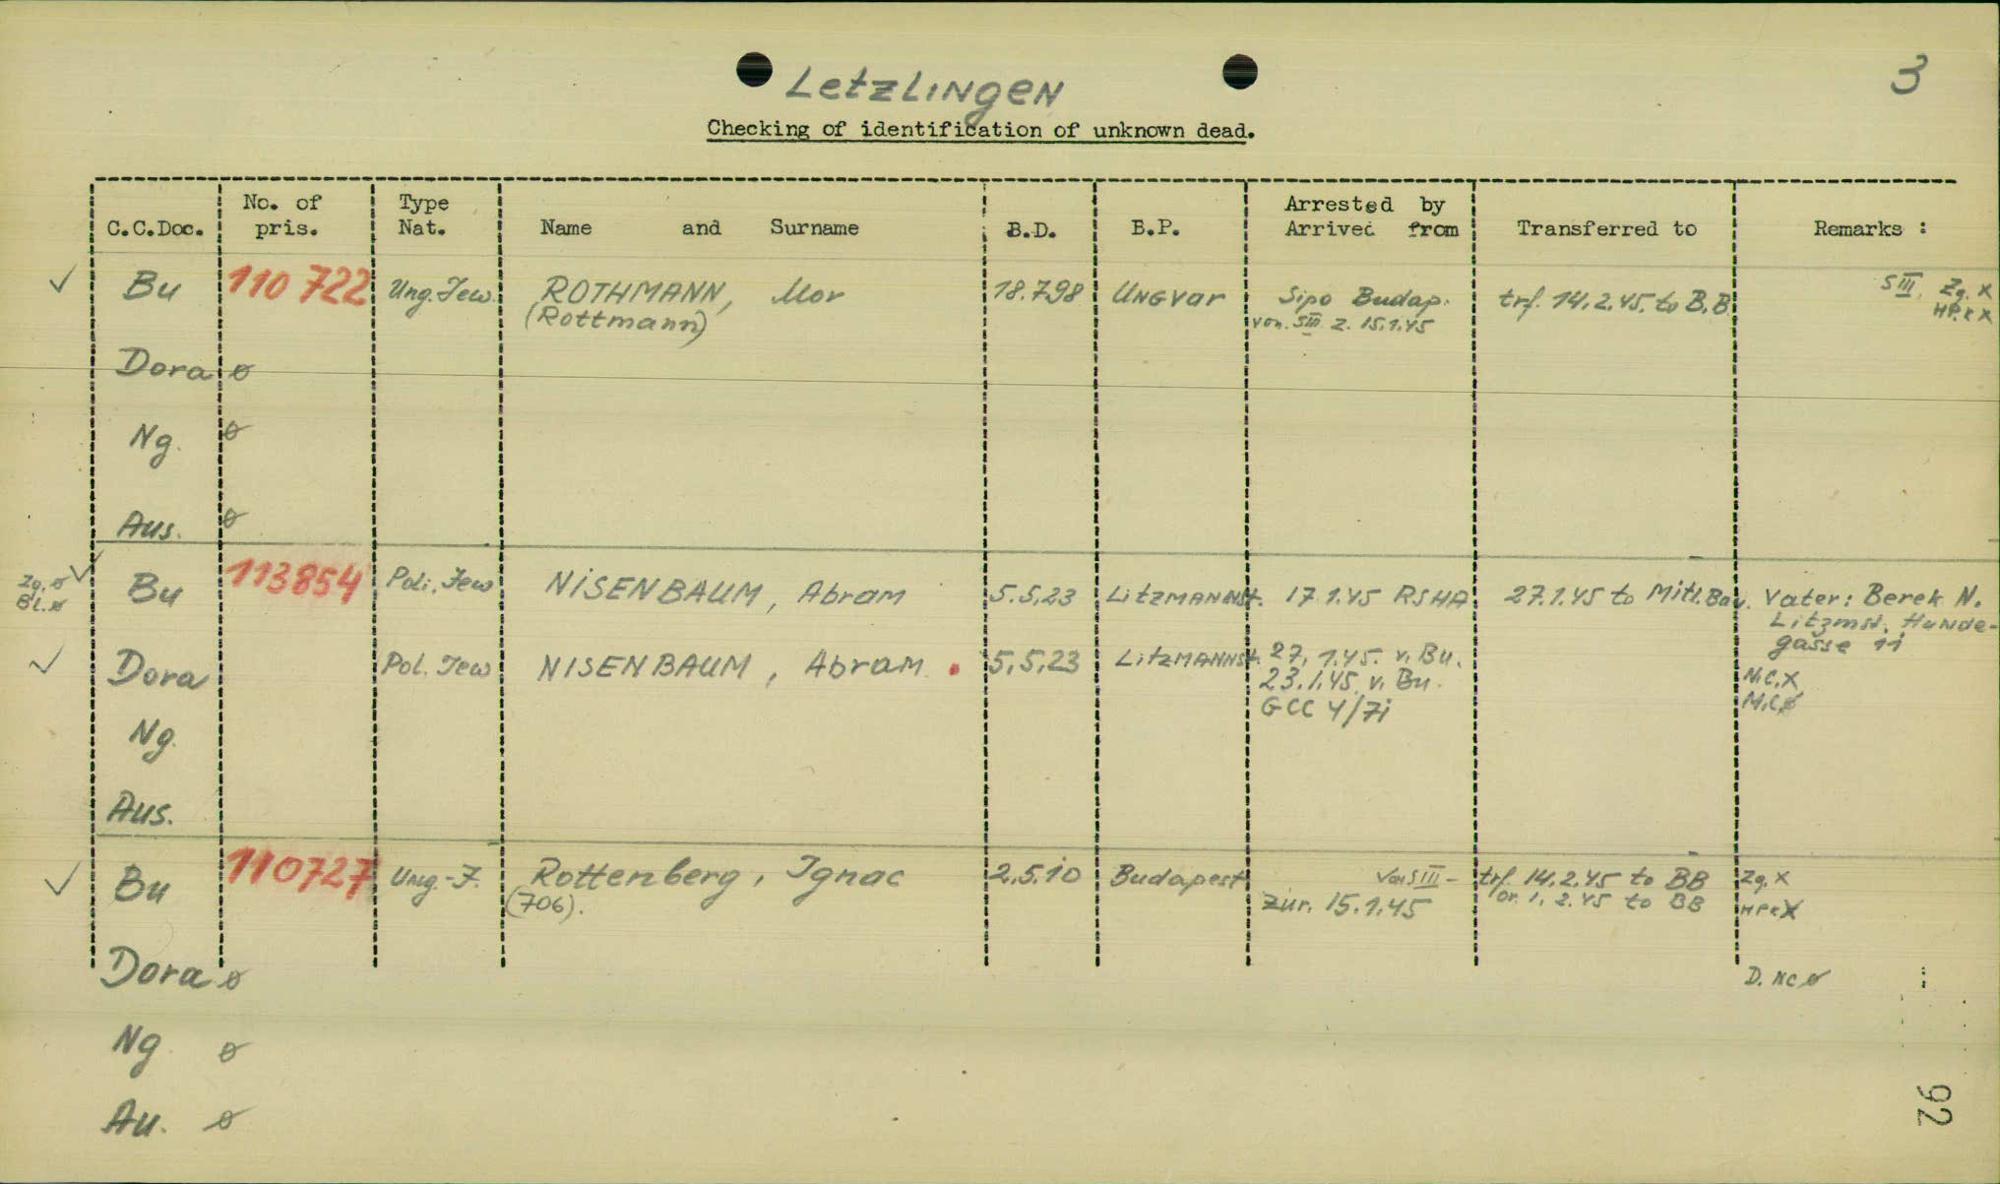 Letzlingen
3
Checking of identification of unknown dead.
C.C.Doc. No. of pris. Type Nat. Name and Surname B.D. B.P. Arrested by Arrived from Transferred to Remarks :
✓ Bu 110 722 Ung. Jew. ROTHMANN, Mor 18.7.98 Ungvar Sipo Budap. trf. 14.2.45. to B.B SIII, Zg. X
(Rottmann) von. SIII z. 15.1.45
Dora ø
Ng. ø
Aus. ø
Zg. ø ✓ Bu 113854 Pol. Jew NISENBAUM, Abram 5.5.23 Litzmannst. 17.1.45 RSHA 27.1.45 to Mitt. Bau. Vater: Berek N.
Bl. ø Litzmst. Hunde-
gasse 11
✓ Dora Pol. Jew NISENBAUM, Abram. 5.5.23 Litzmannst. 27.1.45. v. Bu. N.C.X
23.1.45. v. Bu. M.C.ø
GCC 4/7i
Ng.
Aus.
✓ Bu 110727 Ung.-J. Rottenberg, Ignac 2.5.10 Budapest Von SIII - trf. 14.2.45 to BB Zg. X
(706). zur. 15.1.45 or. 1.2.45 to BB HPKX
Dora ø D. NC ø
Ng ø
Au. ø
92